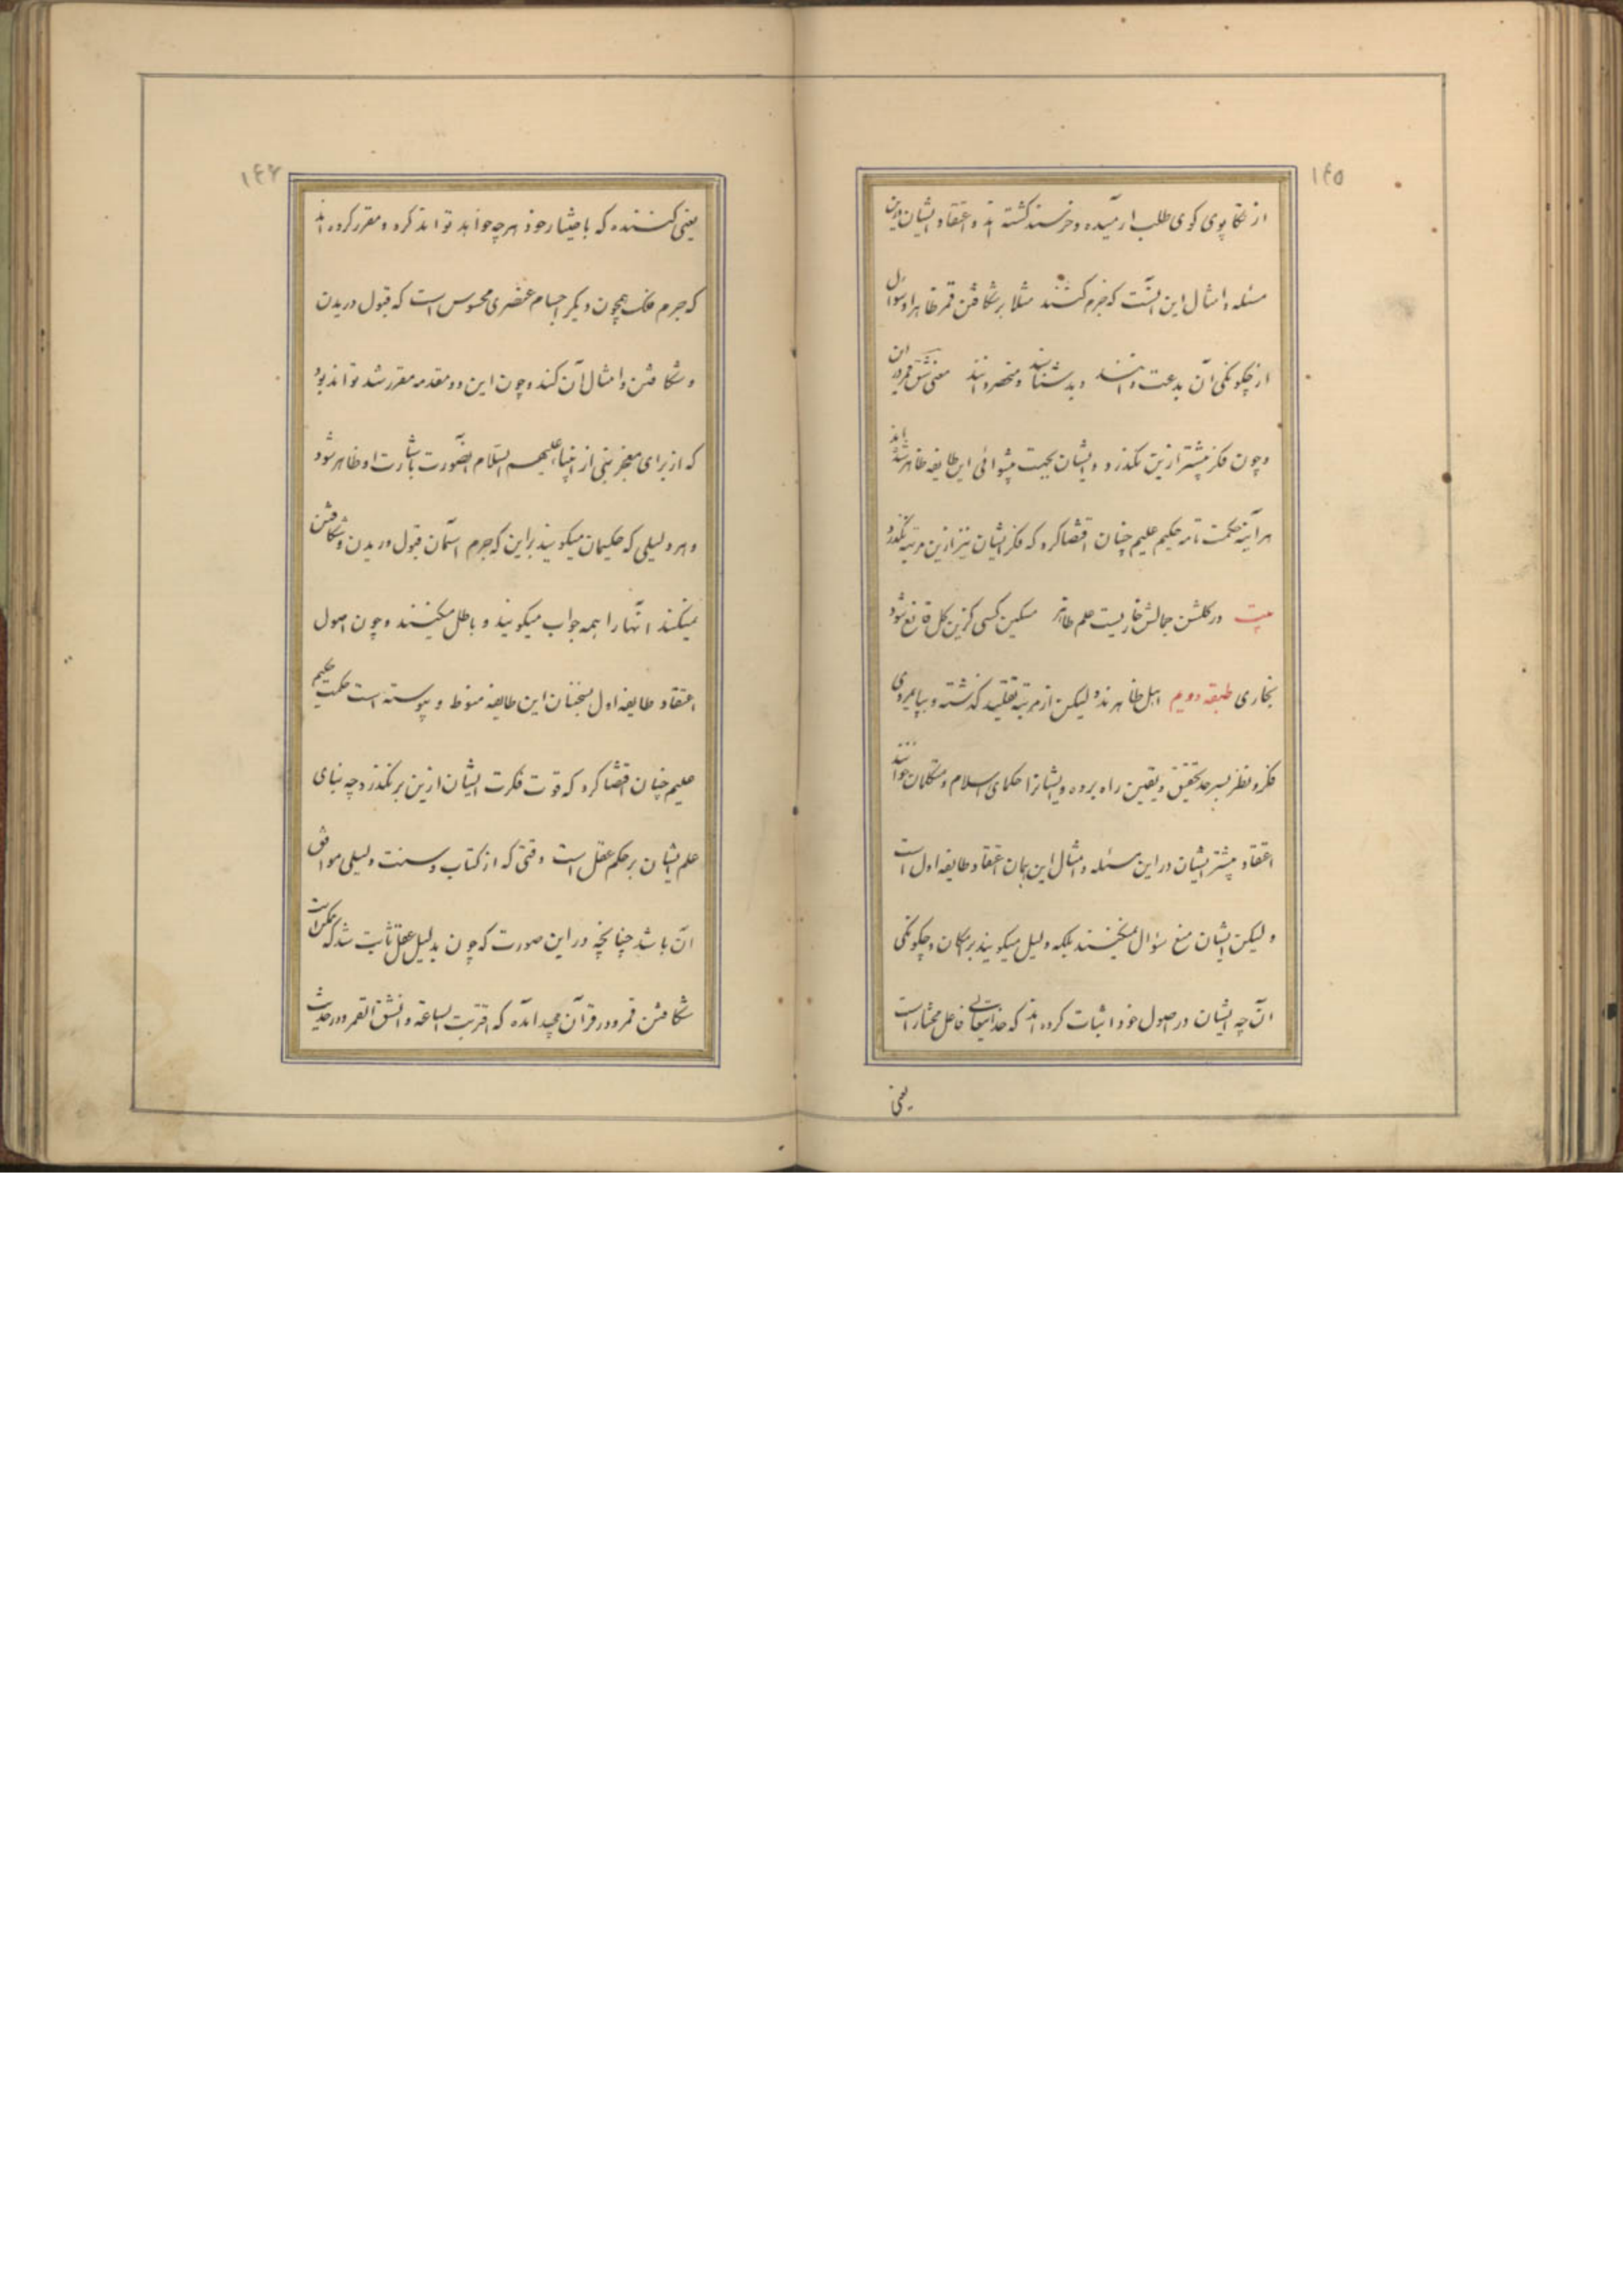 ١٤٥
از تکاپوی کوی طلب ارمیده و خرسند کشته اند و اعتقاد ایشان درین
مسئله و امثال این آنست که جزم کنند مثلا بر شکافتن قمر ظاهرا و سؤال
از چکونکی آن بدعت دانند و بد شناسند و منحصر دانند معنی شق قمر در این
و چون فکر بیشتر ازین نکذرد و ایشان بجهت پیشوائی این طایفه ظاهر شده اند
هر آینه حکمت تامه حکیم علیم چنان اقتضا کرد که فکر ایشان نیز ازین مرتبه نکذرد
بیت در کلشن جمالش خاریست علم ظاهر مسکین کسی کزین کل قانع شود
بخاری طبقه دویم اهل ظاهرند و لیکن از مرتبه تقلید کذشته و بپایمردی
فکر و نظر بسر حد تحقیق و یقین راه برده و ایشانرا حکمای اسلام و متکلمان خوانند
اعتقاد بیشتر ایشان در این مسئله و امثال این همان اعتقاد طایفه اول است
و لیکن ایشان منع سؤال نمیکنند بلکه دلیل میکویند بر امکان و چکونکی
آن چه ایشان در اصول خود اثبات کرده اند که خدایتعالی فاعل مختار است
یعنی
١٤٦
یعنی کننده که باختیار خود هر چه خواهد تواند کرد و مقرر کرده اند
که جرم فلک همچون دیکر اجسام عنصری محسوس است که قبول دریدن
و شکافتن و امثال آن کند و چون این دو مقدمه مقرر شد تواند بود
که از برای معجز نبی از انبیاء علیهم السلام آنصورت باشارت او ظاهر شود
و هر دلیلی که حکیمان میکویند براین که جرم آسمان قبول دریدن و شکافتن
نمیکند آنها را همه جواب میکویند و باطل میکنند و چون اصول
اعتقاد طایفه اول بسخنان این طایفه منوط و پیوسته است حکمت حکیم
علیم چنان اقتضا کرد که قوت فکرت ایشان ازین بر نکذرد چه بنای
علم ایشان بر حکم عقل است وقتی که از کتاب و سنت دلیلی موافق
آن باشد چنانچه در این صورت که چون بدلیل عقل ثابت شد که ممکن است
شکافتن قمر و در قرآن مجید آمده که اقتربت الساعة و انشق القمر و در حدیث